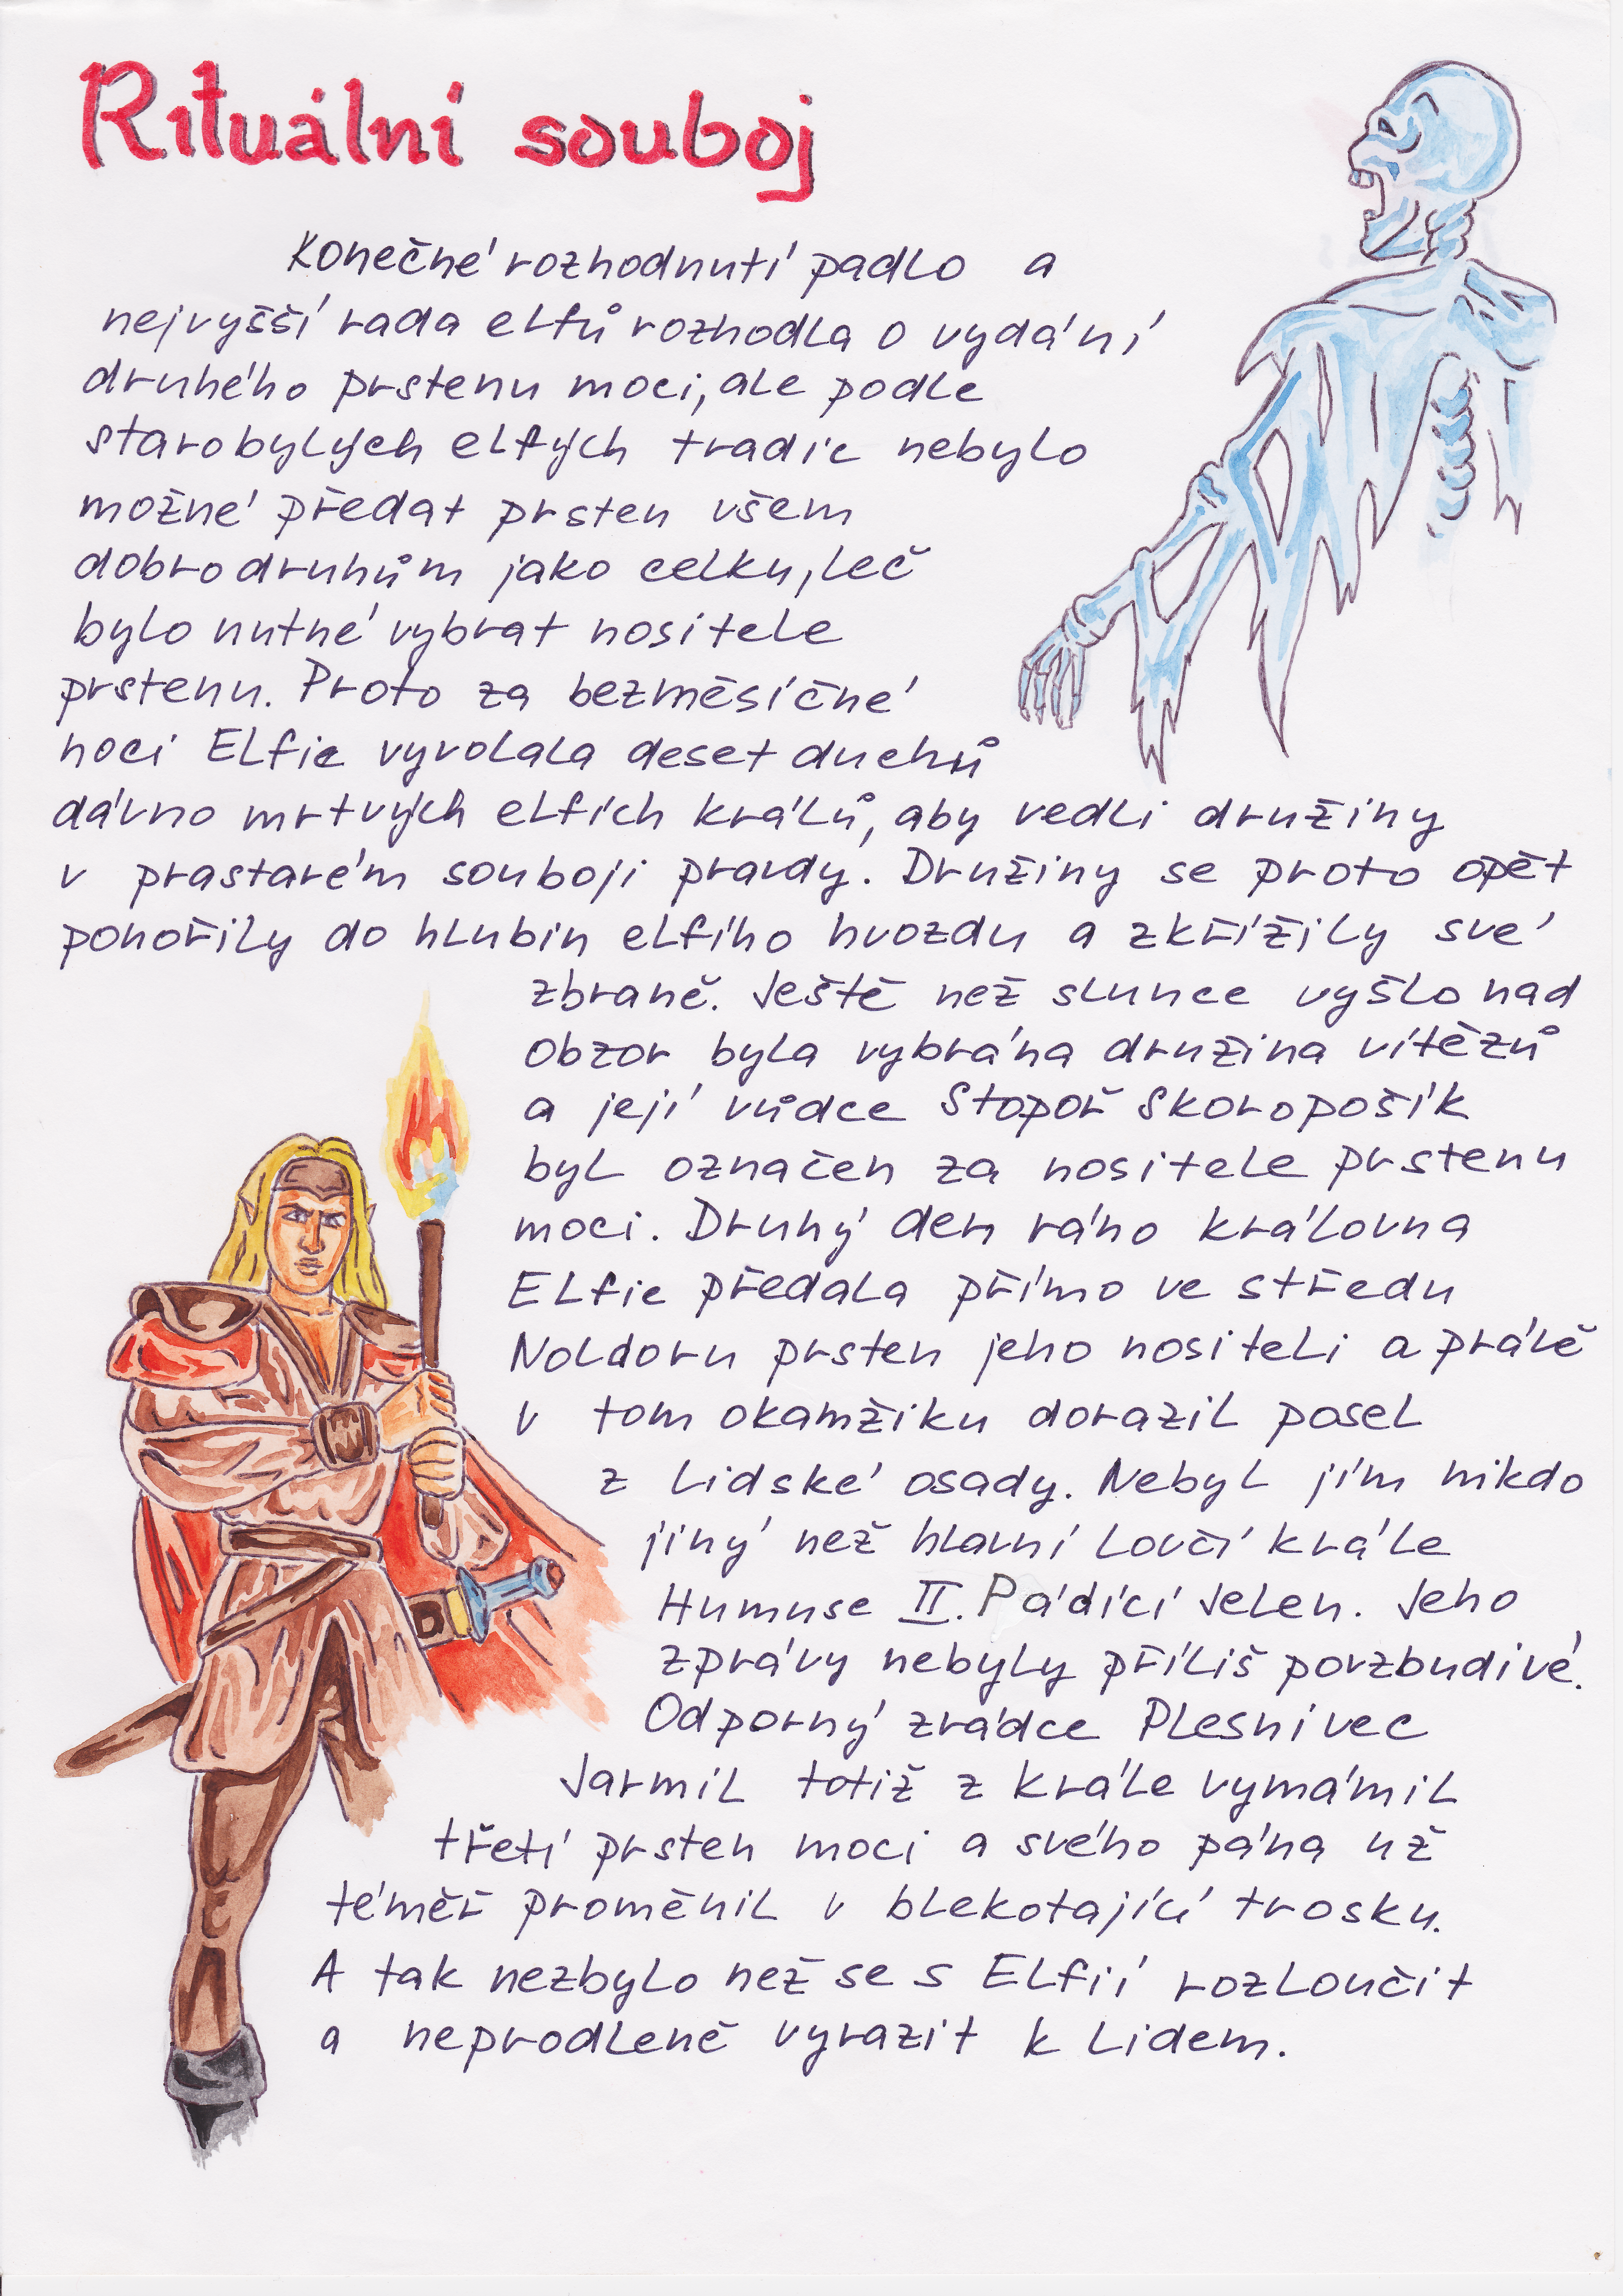 Rituální souboj
Konečné rozhodnutí padlo a
nejvyšší rada elfů rozhodla o vydání
druhého prstenu moci, ale podle
starobylých elfých tradic nebylo
možné předat prsten všem
dobrodruhům jako celku, leč
bylo nutné vybrat nositele
prstenu. Proto za bezměsíčné
noci Elfie vyvolala deset duchů
dávno mrtvých elfích králů, aby vedli družiny
v prastarém souboji pravdy. Družiny se proto opět
ponořily do hlubin elfího hvozdu a zkřížily své
zbraně. Ještě než slunce vyšlo nad
obzor byla vybrána družina vítězů
a její vůdce Stopoř Skoropošík
byl označen za nositele prstenu
moci. Druhý den ráno královna
Elfie předala přímo ve středu
Noldoru prsten jeho nositeli a právě
v tom okamžiku dorazil posel
z lidské osady. Nebyl jím nikdo
jiný než hlavní lovčí krále
Humuse II. Pádící Jelen. Jeho
zprávy nebyly příliš povzbudivé.
Odporný zrádce Plesnivec
Jarmil totiž z krále vymámil
třetí prsten moci a svého pána už
téměř proměnil v blekotající trosku.
A tak nezbylo než se s Elfií rozloučit
a neprodleně vyrazit k lidem.